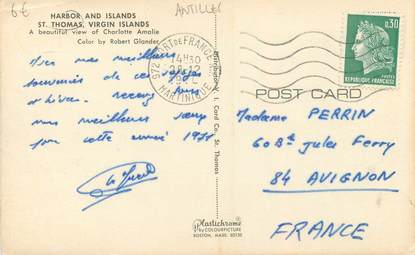 6€
ANTILLES
HARBOR AND ISLANDS
ST. THOMAS, VIRGIN ISLANDS
A beautiful view of Charlotte Amalie
Color by Robert Glander
mes meilleurs
souvenirs de ce
d'hiver. recevez
nos meilleurs vœux
pour cette année 197
Distributor: V. I. Card Co. St. Thomas
Plastichrome
by COLOURPICTURE
BOSTON, MASS. 02130
FORT DE FRANCE
14H30
28-12
MARTINIQUE
0,30
REPUBLIQUE FRANCAISE
POSTES
POST CARD
Madame PERRIN
60 Bd Jules Ferry
84 AVIGNON
FRANCE